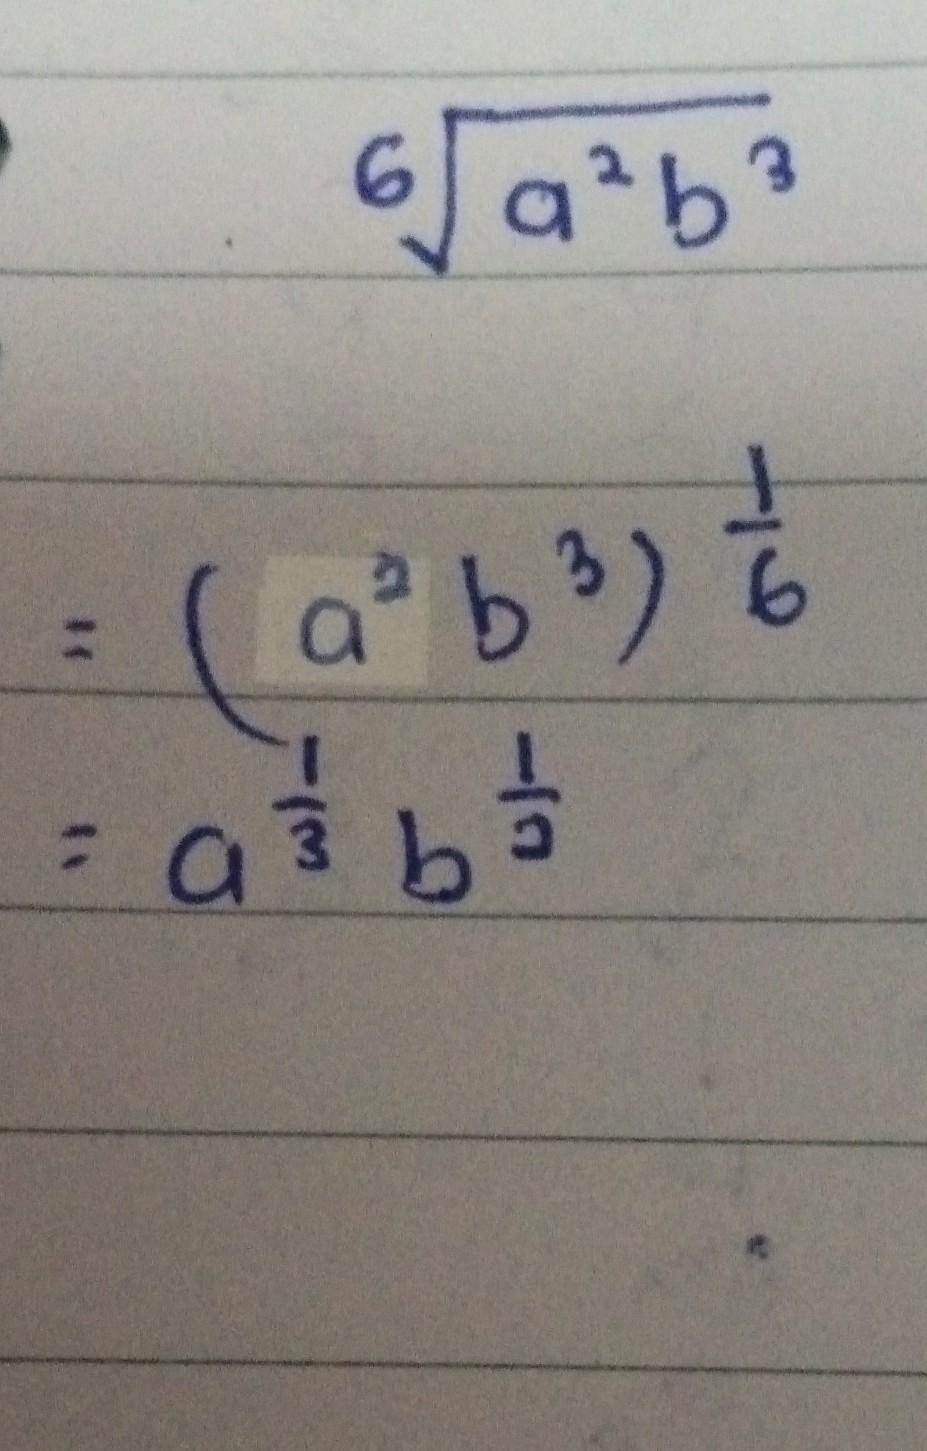 ⁶√(a²b³)
= (a²b³)^(1/6)
= a^(1/3) b^(1/2)